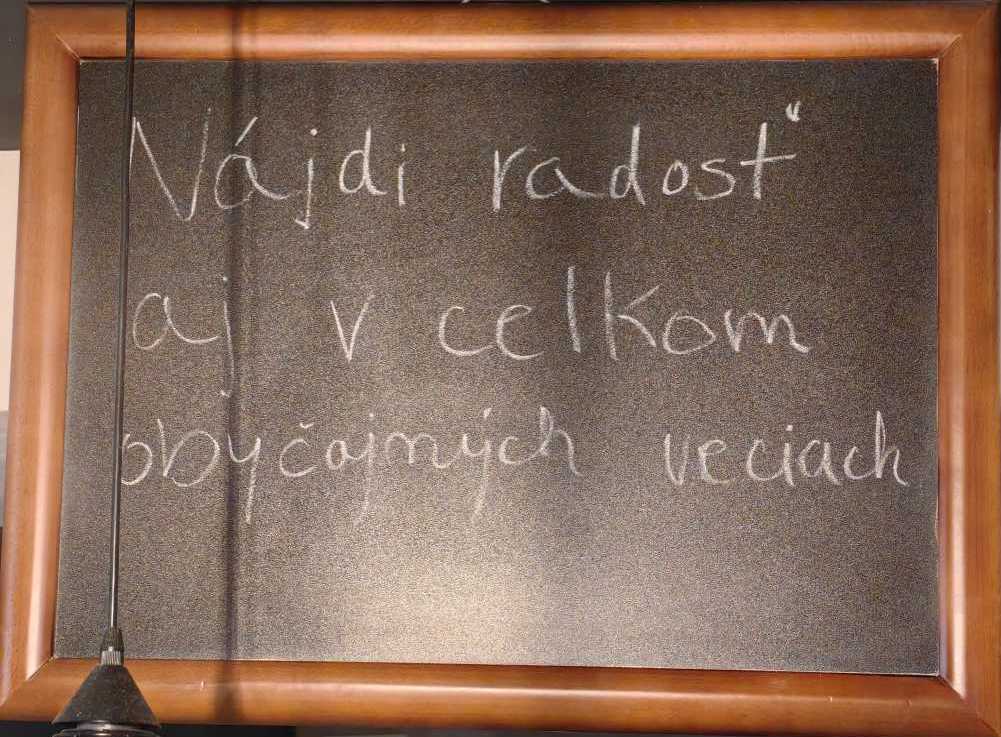 Nájdi radosť
aj v celkom
obyčajných veciach